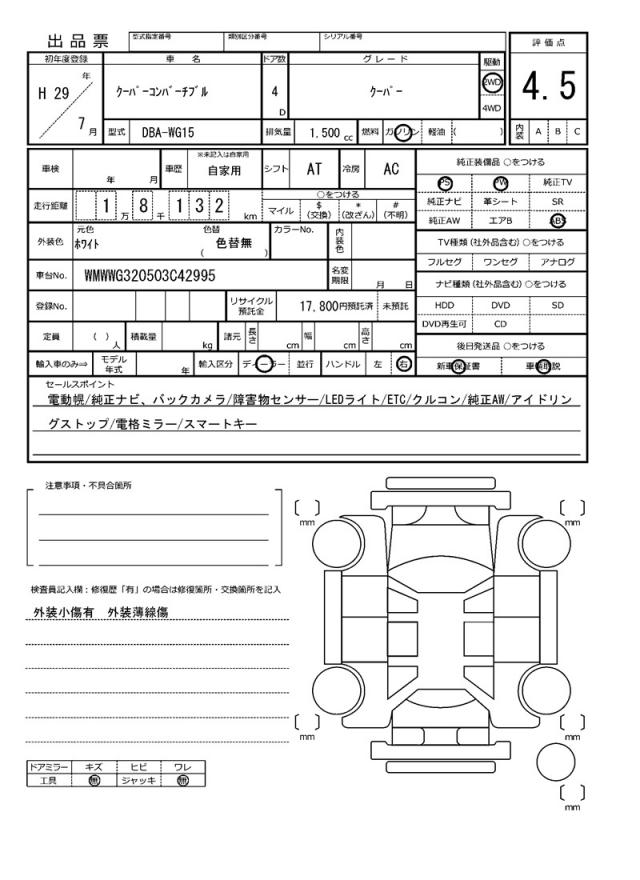 出品票 型式指定番号 類別区分番号 シリアル番号
評価点
初年度登録 車名 ドア数 グレード 駆動
H 29 年 クーパーコンバーチブル 4 D クーパー 2WD 4.5
7 月 4WD
型式 DBA-WG15 排気量 1.500 cc 燃料 ガソリン 軽油 ( ) 内装 A B C
車検 年 月 車歴 ※未記入は自家用 自家用 シフト AT 冷房 AC 純正装備品 ○をつける
PS PW 純正TV
走行距離 1 万 8 千 1 3 2 km ○をつける 純正ナビ 革シート SR
マイル $ (交換) * (改ざん) # (不明) 純正AW エアB ABS
外装色 元色 ホワイト 色替 ( 色替無 ) カラーNo. 内装色 TV種類(社外品含む)○をつける
フルセグ ワンセグ アナログ
車台No. WMWWG320503C42995 名変期限 月 日 ナビ種類(社外品含む)○をつける
登録No. リサイクル預託金 17,800円預託済 未預託 HDD DVD SD
DVD再生可 CD
定員 ( ) 人 積載量 kg 諸元 長さ cm 幅 cm 高さ cm 後日発送品 ○をつける
輸入車のみ⇒ モデル年式 年 輸入区分 ディーラー 並行 ハンドル 左 右 新車保証書 車輌取説
セールスポイント
電動幌/純正ナビ、バックカメラ/障害物センサー/LEDライト/ETC/クルコン/純正AW/アイドリン
グストップ/電格ミラー/スマートキー
注意事項・不具合箇所
mm mm
検査員記入欄：修復歴「有」の場合は修復箇所・交換箇所を記入
外装小傷有 外装薄線傷
mm mm
ドアミラー キズ ヒビ ワレ
工具 無 ジャッキ 無
mm